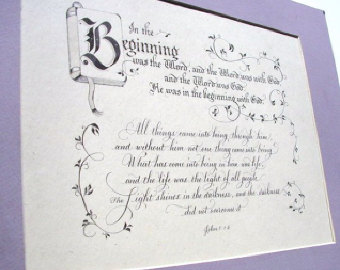 In the
Beginning
was the Word, and the Word was with God
and the Word was God
He was in the beginning with God.
All things came into being through him,
and without him not one thing came into being.
What has come into being in him was life,
and the life was the light of all people.
The Light shines in the darkness, and the darkness
did not overcome it.
John 1:1-5